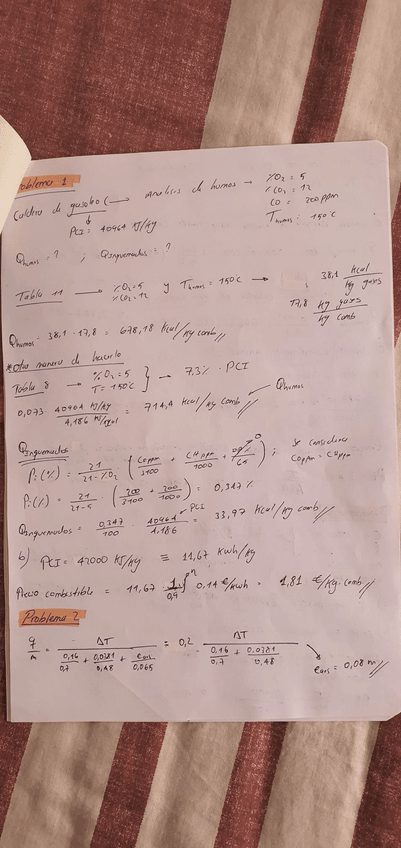 oblema 1
Caldera de gasoleo (→ Analisis de humos → %O₂ = 5
%CO₂ = 12
CO = 200ppm
T humos: 150°C
PCI = 40964 KJ/Kg
Qhumos = ? ; Qinquemados = ?
Tabla 11 → %O₂ = 5 %CO₂ = 12 y T humos = 150°C → 38,1 Kcal/Kg gases
17,8 Kg gases/Kg comb
Qhumos = 38,1 · 17,8 = 678,18 Kcal/Kg comb//
*Otra manera de hacerlo
Tabla 8 → %O₂ = 5 T = 150°C } → 7,3% · PCI
0,073 40964 KJ/Kg / 4,186 KJ/Kcal = 714,4 Kcal/Kg comb// Qhumos
Qinquemados
Pi (%) = 21/(21-%O₂) (COppm/3100 + CHppm/1000 + 0) ; Se considera COppm = CHppm
Pi (%) = 21/(21-5) · (200/3100 + 200/1000) = 0,347 %
Qinquemados = 0,347/100 · 40964/4,186 PCI = 33,97 Kcal/Kg comb//
b) PCI = 42000 KJ/Kg ≡ 11,67 Kwh/Kg
Precio combustible = 11,67 · 1/0,9 η · 0,14 €/Kwh = 1,81 €/Kg comb//
Problema 2
q/A = ΔT / (0,16/0,7 + 0,0381/0,48 + eais/0,065) = 0,2 · ΔT / (0,16/0,7 + 0,0381/0,48) → eais = 0,08 m//